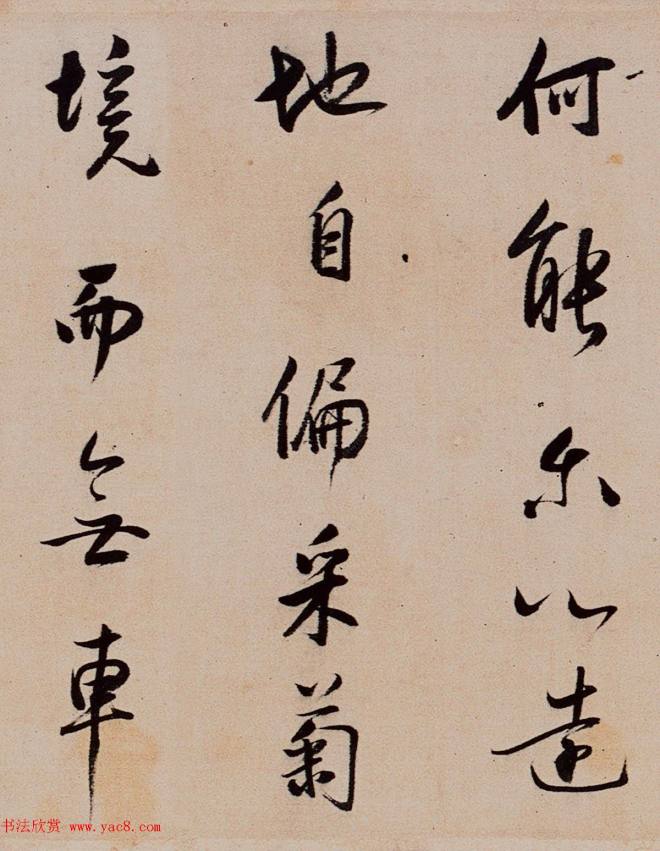 何能尔心遠
地自偏采菊
境而無車
书法欣赏 www.yac8.com